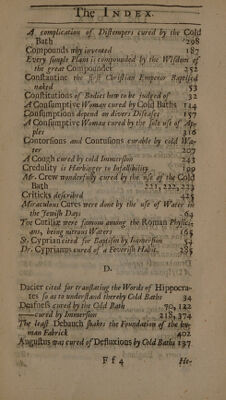 The INDEX.
A complication of Distempers cured by the Cold
Bath 298
Compounds why invented 187
Every simple Plant is compounded by the Wisdom of
the great Compounder 252
Constantine the first Christian Emperor Baptised
naked 53
Constitutions of Bodies how to be judged of 32
A Consumptive Woman cured by Cold Baths 144
Consumptions depend on divers Diseases 157
A Consumptive Woman cured by the sole use of Ap-
ples 316
Contorsions and Contusions curable by cold Wa-
ter 207
A Cough cured by cold Immersion 243
Credulity is Harbinger to Infallibility 199
Mr. Crew wonderfully cured by the use of the Cold
Bath 221, 222, 223
Criticks described 425
Miraculous Cures were done by the use of Water in
the Jewish Days 64
The Cutiliæ were famous among the Roman Physici-
ans, being nitrous Waters 165
St. Cyprian cited for Baptism by Immersion 54
Dr. Cyprianus cured of a Feverish Habit 285
D.
Dacier cited for translating the Words of Hippocra-
tes so as to understand thereby Cold Baths 34
Deafness cured by the Cold Bath 70, 122
—— cured by Immersion 218, 374
The least Debauch shakes the Foundation of the hu-
man Fabrick 402
Augustus was cured of Defluxions by Cold Baths 137
F f 4 He-